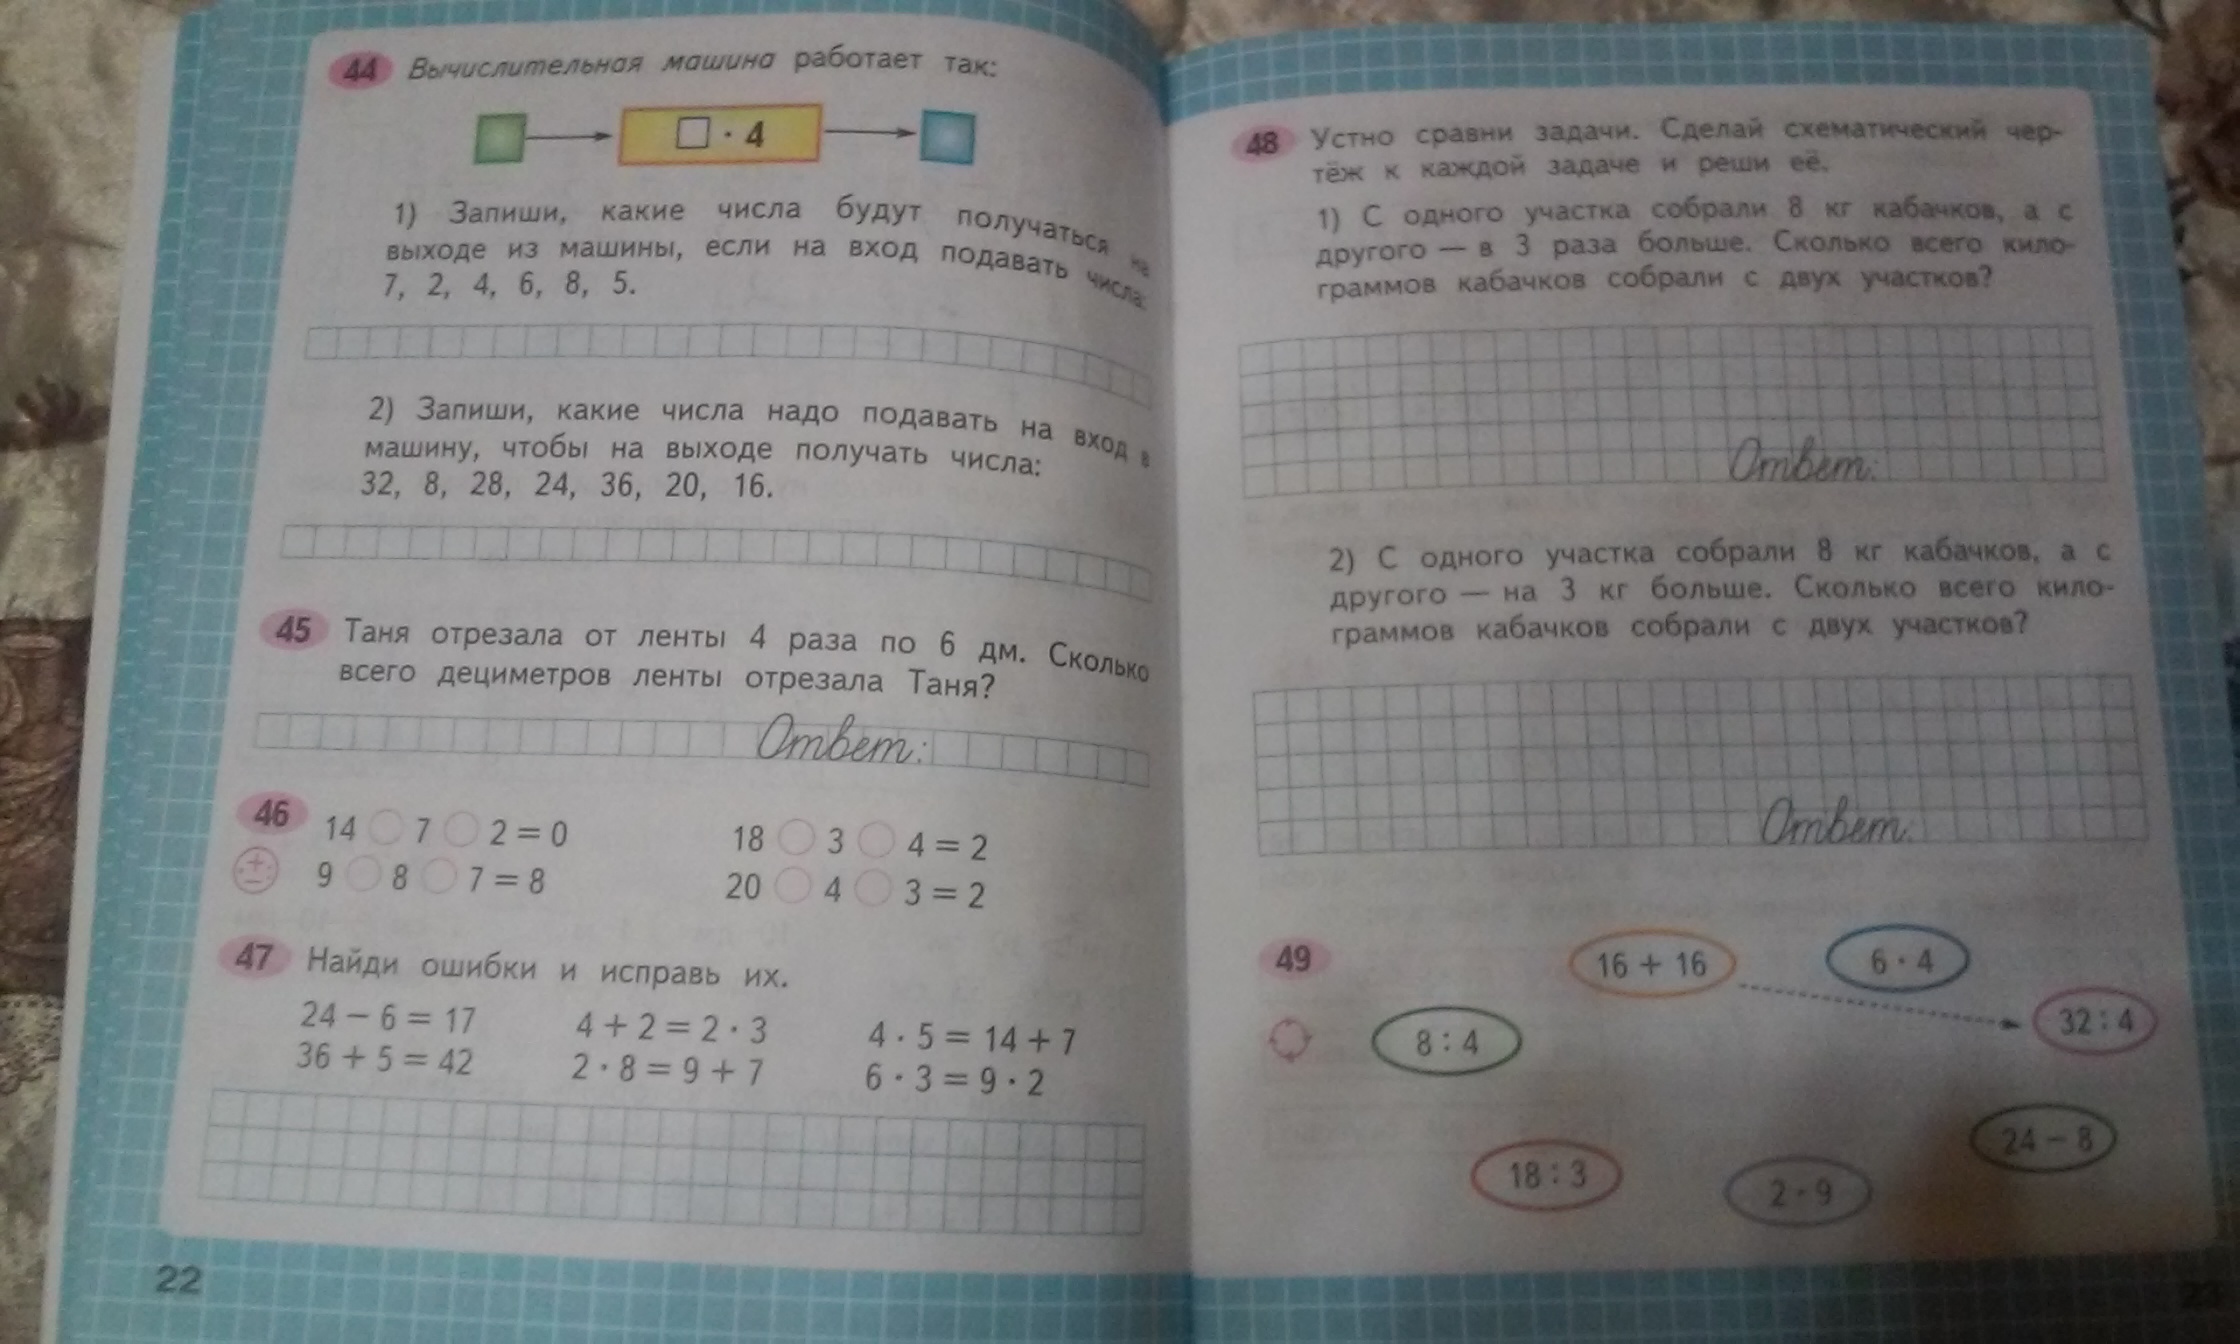 44 Вычислительная машина работает так:
□ · 4
1) Запиши, какие числа будут получаться на
выходе из машины, если на вход подавать числа:
7, 2, 4, 6, 8, 5.
2) Запиши, какие числа надо подавать на вход в
машину, чтобы на выходе получать числа:
32, 8, 28, 24, 36, 20, 16.
45 Таня отрезала от ленты 4 раза по 6 дм. Сколько
всего дециметров ленты отрезала Таня?
Ответ:
46 14 ○ 7 ○ 2 = 0 18 ○ 3 ○ 4 = 2
9 ○ 8 ○ 7 = 8 20 ○ 4 ○ 3 = 2
47 Найди ошибки и исправь их.
24 − 6 = 17 4 + 2 = 2 · 3 4 · 5 = 14 + 7
36 + 5 = 42 2 · 8 = 9 + 7 6 · 3 = 9 · 2
22
48 Устно сравни задачи. Сделай схематический чер-
тёж к каждой задаче и реши её.
1) С одного участка собрали 8 кг кабачков, а с
другого — в 3 раза больше. Сколько всего кило-
граммов кабачков собрали с двух участков?
Ответ:
2) С одного участка собрали 8 кг кабачков, а с
другого — на 3 кг больше. Сколько всего кило-
граммов кабачков собрали с двух участков?
Ответ:
49 16 + 16 6 · 4
8 : 4 32 : 4
18 : 3 2 · 9 24 − 8
23